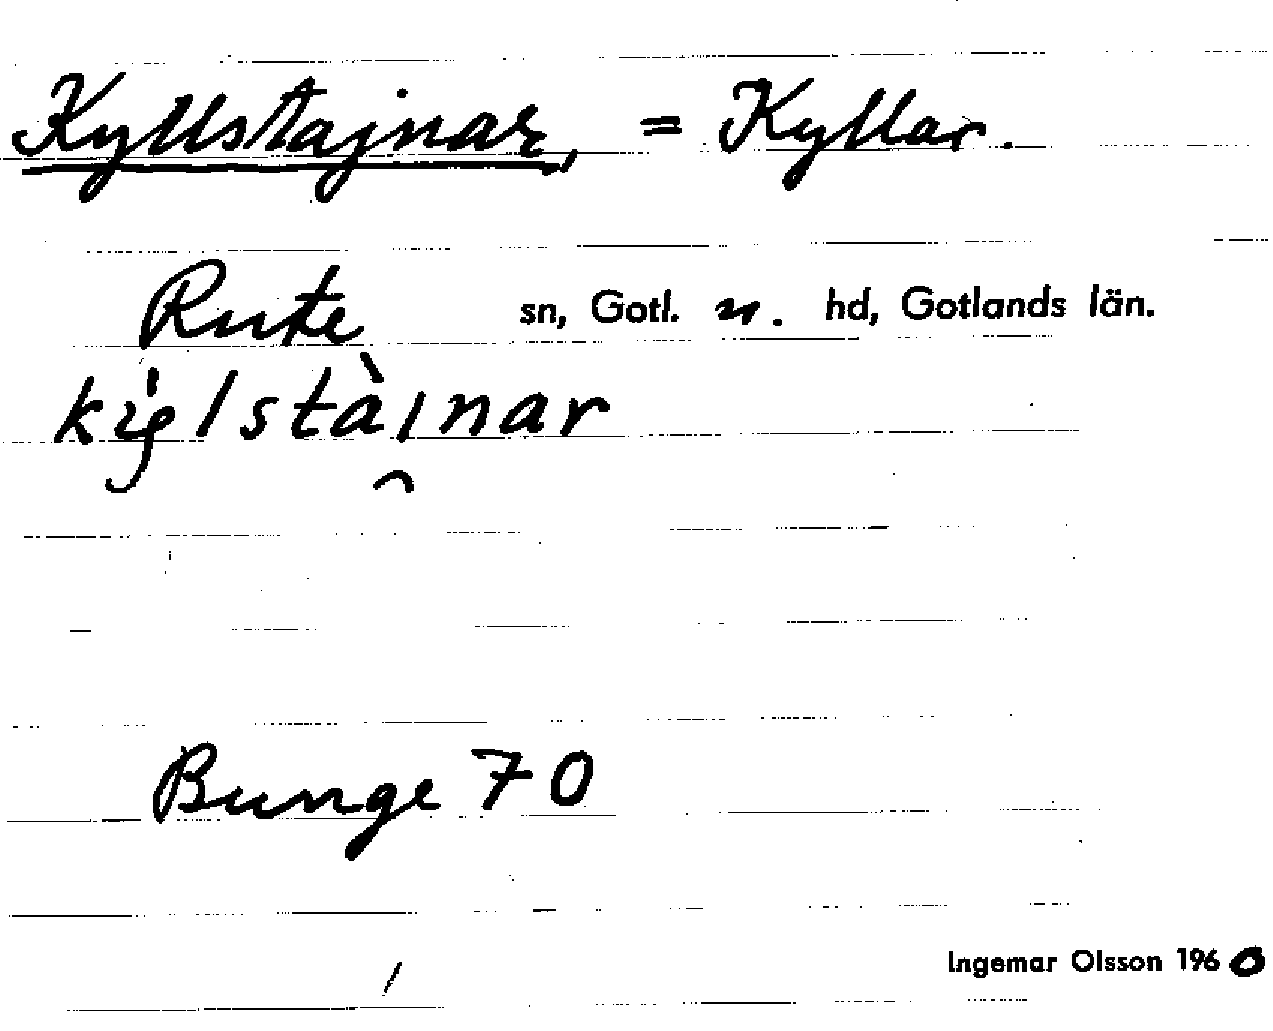 Kyllstajnar, = Kyllar.
Rute sn, Gotl. n. hd, Gotlands län.
Bunge 70
Ingemar Olsson 1960